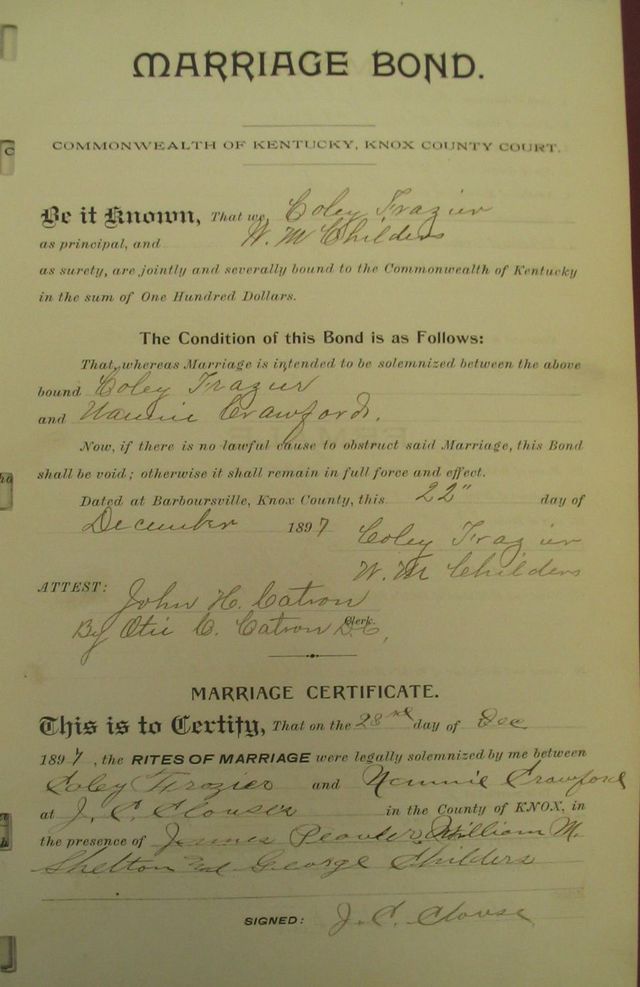 MARRIAGE BOND.
COMMONWEALTH OF KENTUCKY, KNOX COUNTY COURT.
Be it Known, That we, Coley Frazier
as principal, and W. M Childers
as surety, are jointly and severally bound to the Commonwealth of Kentucky
in the sum of One Hundred Dollars.
The Condition of this Bond is as Follows:
That, whereas Marriage is intended to be solemnized between the above
bound Coley Frazier
and Nannie Crawford.
Now, if there is no lawful cause to obstruct said Marriage, this Bond
shall be void; otherwise it shall remain in full force and effect.
Dated at Barboursville, Knox County, this 22" day of
December 1897 Coley Frazier
W. M Childers
ATTEST:
John H. Catron
By Otis C. Catron D.C. Clerk.
MARRIAGE CERTIFICATE.
This is to Certify, That on the 23rd day of Dec
1897, the RITES OF MARRIAGE were legally solemnized by me between
Coley Frazier and Nannie Crawford
at J. C. Clouses in the County of KNOX, in
the presence of James William M.
Shelton and George Childers
SIGNED: J. C. Clouse